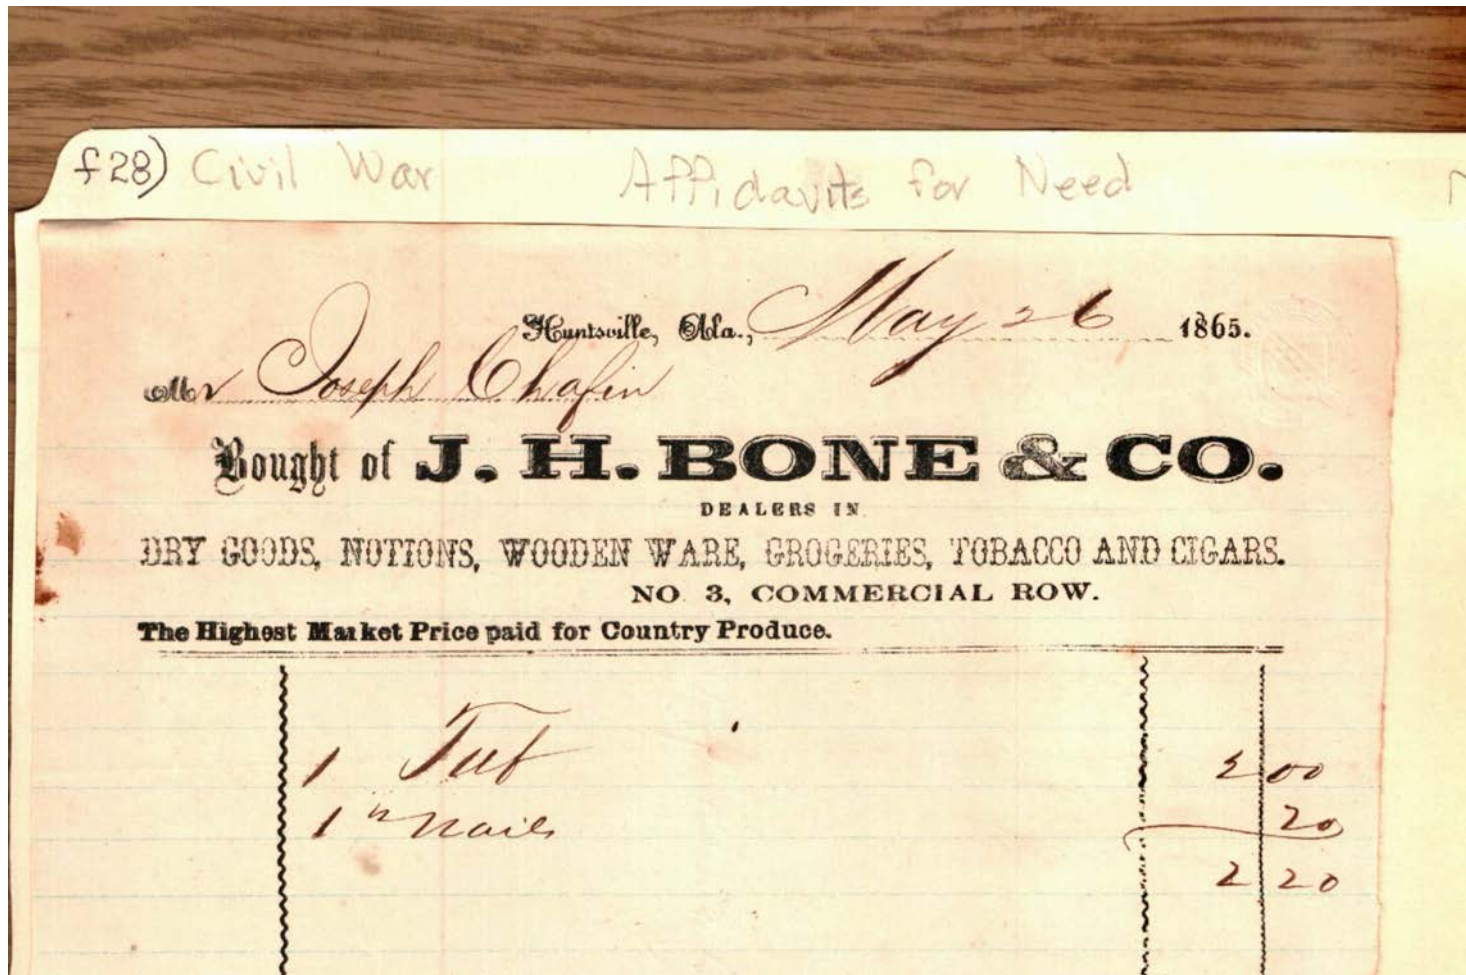 f28) Civil War Affidavits for Need
Huntsville, Ala., May 26 1865.
Mr Joseph Chafin
Bought of J. H. BONE & CO.
DEALERS IN
DRY GOODS, NOTIONS, WOODEN WARE, GROGERIES, TOBACCO AND CIGARS.
NO. 3, COMMERCIAL ROW.
The Highest Market Price paid for Country Produce.
1 Tub 2 00
1 " Nails 20
2 20